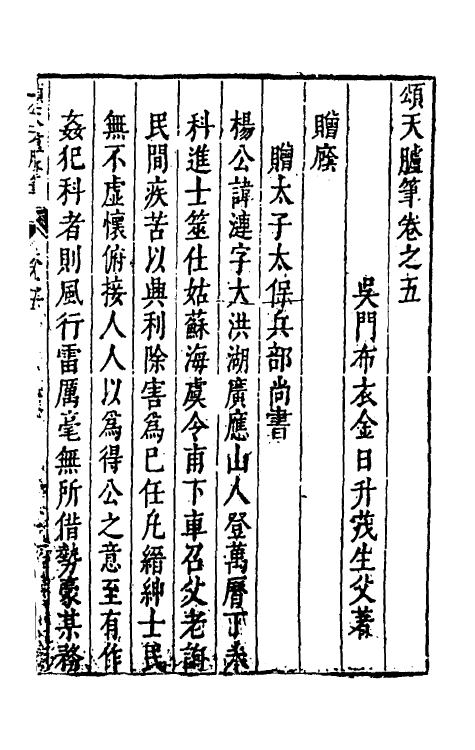 頌天臚筆卷之五
吳門布衣金日升茂生父著
贈廕
贈太子太保兵部尚書
楊公諱漣字大洪湖廣應山人登萬曆丁未
科進士筮仕姑蘇海虞令甫下車召父老詢
民間疾苦以興利除害為己任凡縉紳士民
無不虛懷俯接人人以為得公之意至有作
姦犯科者則風行雷厲毫無所借勢豪某務